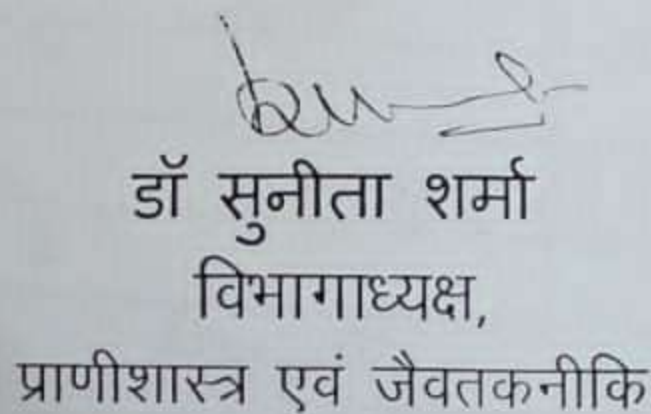 डॉ सुनीता शर्मा
विभागाध्यक्ष,
प्राणीशास्त्र एवं जैवतकनीकि